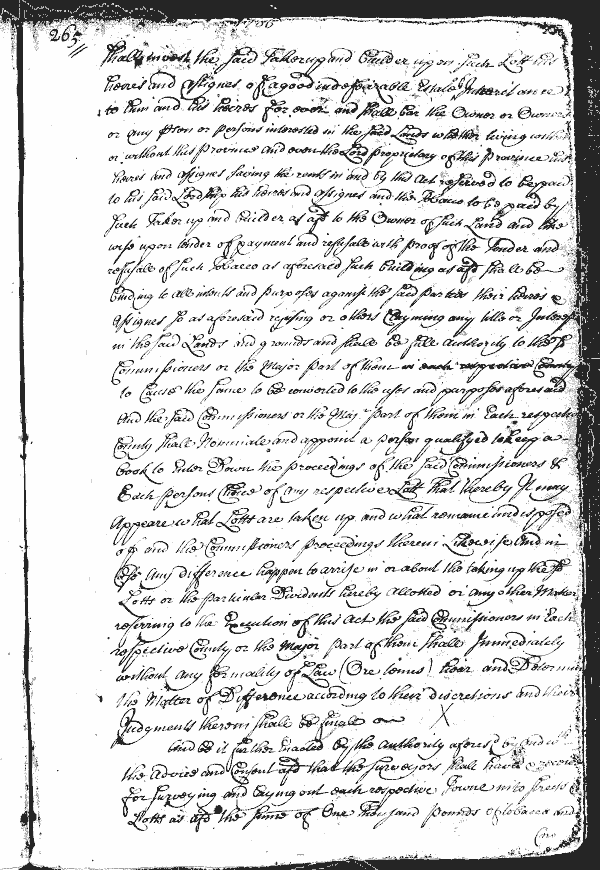 265
shall invest the said Taker up and builder upon such Lott his
heires and assignes of a good indefeizable Estate & Interest
to him and his heires for ever and shall bar the Owner or Owners
or any pson or persons interested in the said Lands whether living within
or without this Province and even the Lord proprietary of this Province his
heires and assignes saving the rents in and by this Act reserved to be paid
to his said Lordship his heires and assignes and the Tobacco to be paid by
such Taker up and builder as afd to the Owner of such Land and like
wise upon tender of payment and refusall with proof of the Tender and
refusall of such Tobacco as aforesaid such building as afd shall be
binding to all intents and purposes against the said parties their heires &
Assignes so as aforesaid refusing or others Clayming any title or Interest
in the said Lands and grounds and shall be full authority to the sd
Commissioners or the Major part of them in each respective County
to Cause the same to be converted to the uses and purposes aforesaid
And the said Commissioners or the Maj. part of them in Each respective
County shall Nominate and appoint a person qualifyed to keep a
book to Enter Down the proceedings of the said Commissioners &
Each persons Choice of any respective Lott that thereby It may
Appeare what Lotts are taken up and what remaine undisposed
off and the Commissioners proceedings therein Likewise And in
Case Any difference happen to arrise in or about the taking up the sd
Lotts or the particular Dividents hereby allotted or any other Matter
referring to the Execution of this Act the said Commissioners in Each
respective County or the Major part of them shall Immediately
without any formality of Law (Ore tenus) hear and Determin
the Matter of Difference according to their discretions and their
Judgments therein shall be finall
And be it further Enacted by the authority aforesd by and with
the Advice and Consent afd that the surveyors shall have & receive
for surveying and laying out each respective Towne into
Lotts as afd the sume of One thousand pounds of tobacco and